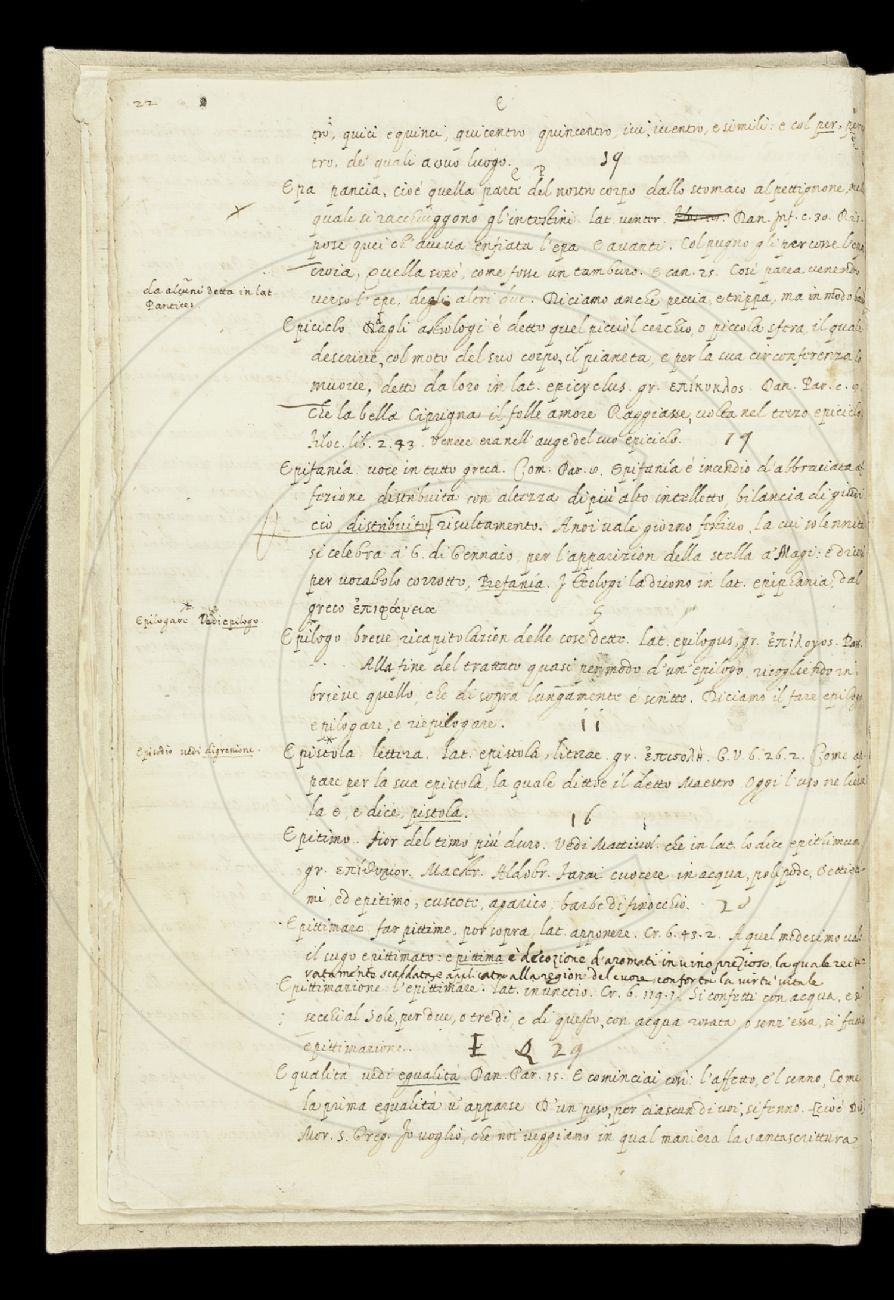 22
E
tro, quici e quinci, quicentro quincentro, ivi, ivientro, e simili: e col per. per
tro, de' quali a suo luogo. 19
E P
Epa pancia, cioè quella parte del nostro corpo dallo stomaco al pettignone, nel
quale si racchiuggono gl'intestini lat. venter. Dan. Inf. c. 30. Ris
pose quei ch'aveva enfiata l'epa. E avanti. Col pugno gli percosse l'epa
croia, Quella sonò, come fosse un tamburo. E can. 25. Così parea venendo
da alcuni detta in lat.
Pantices
verso l'epe, degli altri due. Diciamo anche peccia, e trippa, ma in modo
Epiciclo Dagli astrologi è detto quel picciol cerchio, o piccola sfera, il quale
descrive, col moto del suo corpo, il pianeta, e per la sua circonferenza lo
muove, detto da loro in lat. epicyclus. gr. ἐπίκυκλος. Dan. Par. c. 8.
Che la bella Ciprigna il folle amore Raggiasse, volta nel terzo epiciclo
Filoc. lib. 2. 43. Venere era nell'auge del suo epiciclo. 19
Epifania voce in tutto greca. Com. Par. Epifania è incendio d'abbraciata af
fezione distribuita con altezza di più alto intelletto bilancia di giudi
cio distribuito risultamento. Anoi vale giorno festivo, la cui solennità
si celebra a' 6. di Gennaio, per l'apparizion della stella a' Magi: e dicesi
per vocabolo corrotto, Befania. I Teologi la dicono in lat. epiphania, dal
greco ἐπιφάνεια 5
Epilogare Vedi epilogo
Epilogo breve ricapitolazion delle cose dette. lat. epilogus, gr. ἐπίλογος. Par.
Alla fine del trattato quasi per modo d'un epilogo, ricogliendo in
brieve quello, che di sopra lungamente è scritto. Diciamo il fare epilogo
epilogare, e riepilogare. 11
Episodio vedi digressione.
Epistola lettera. lat. epistola, literae. gr. ἐπιστολή. G. V. 6. 26. 2. Come ap
pare per la sua epistola, la quale dittoe il detto Maestro Oggi l'uso ne lieva
la e, e dice, pistola. 16
Epitimo. fior del timo più duro. Vedi Mattiuol. che in lat. lo dice epithimum
gr. ἐπίθυμον. Maestr. Aldobr. Farai cuocere in acqua, polipode, Settimi
mi, ed epitimo, cuscote, agarico, barbe di finocchio. 20
Epittimare far pittime, por sopra, lat. apponere. Cr. 6. 43. 2. A quel medesimo vale
il sugo epittimato: e pittima è decozione d'aromati in vino prezioso, la quale reite
ratamente scaldata e applicata alla region del cuore, conforta la virtù vitale
Epittimazione. l'epittimare. lat. inunctio. Cr. 6. 119. 1. Si confetti con acqua, e si
secchi al Sole, per due, o tre dì, e di questo, con acqua rosata, o senz'essa, si faccia
epittimazione. E Q 29
Equalità vedi egualità Dan. Par. 15. E cominciai così: l'affetto, e 'l senno, Come
la prima equalità v'apparse D'un peso, per ciascun di voi, si fenno.
Mor. S. Greg. Io voglio, che noi veggiamo in qual maniera la santa scrittura